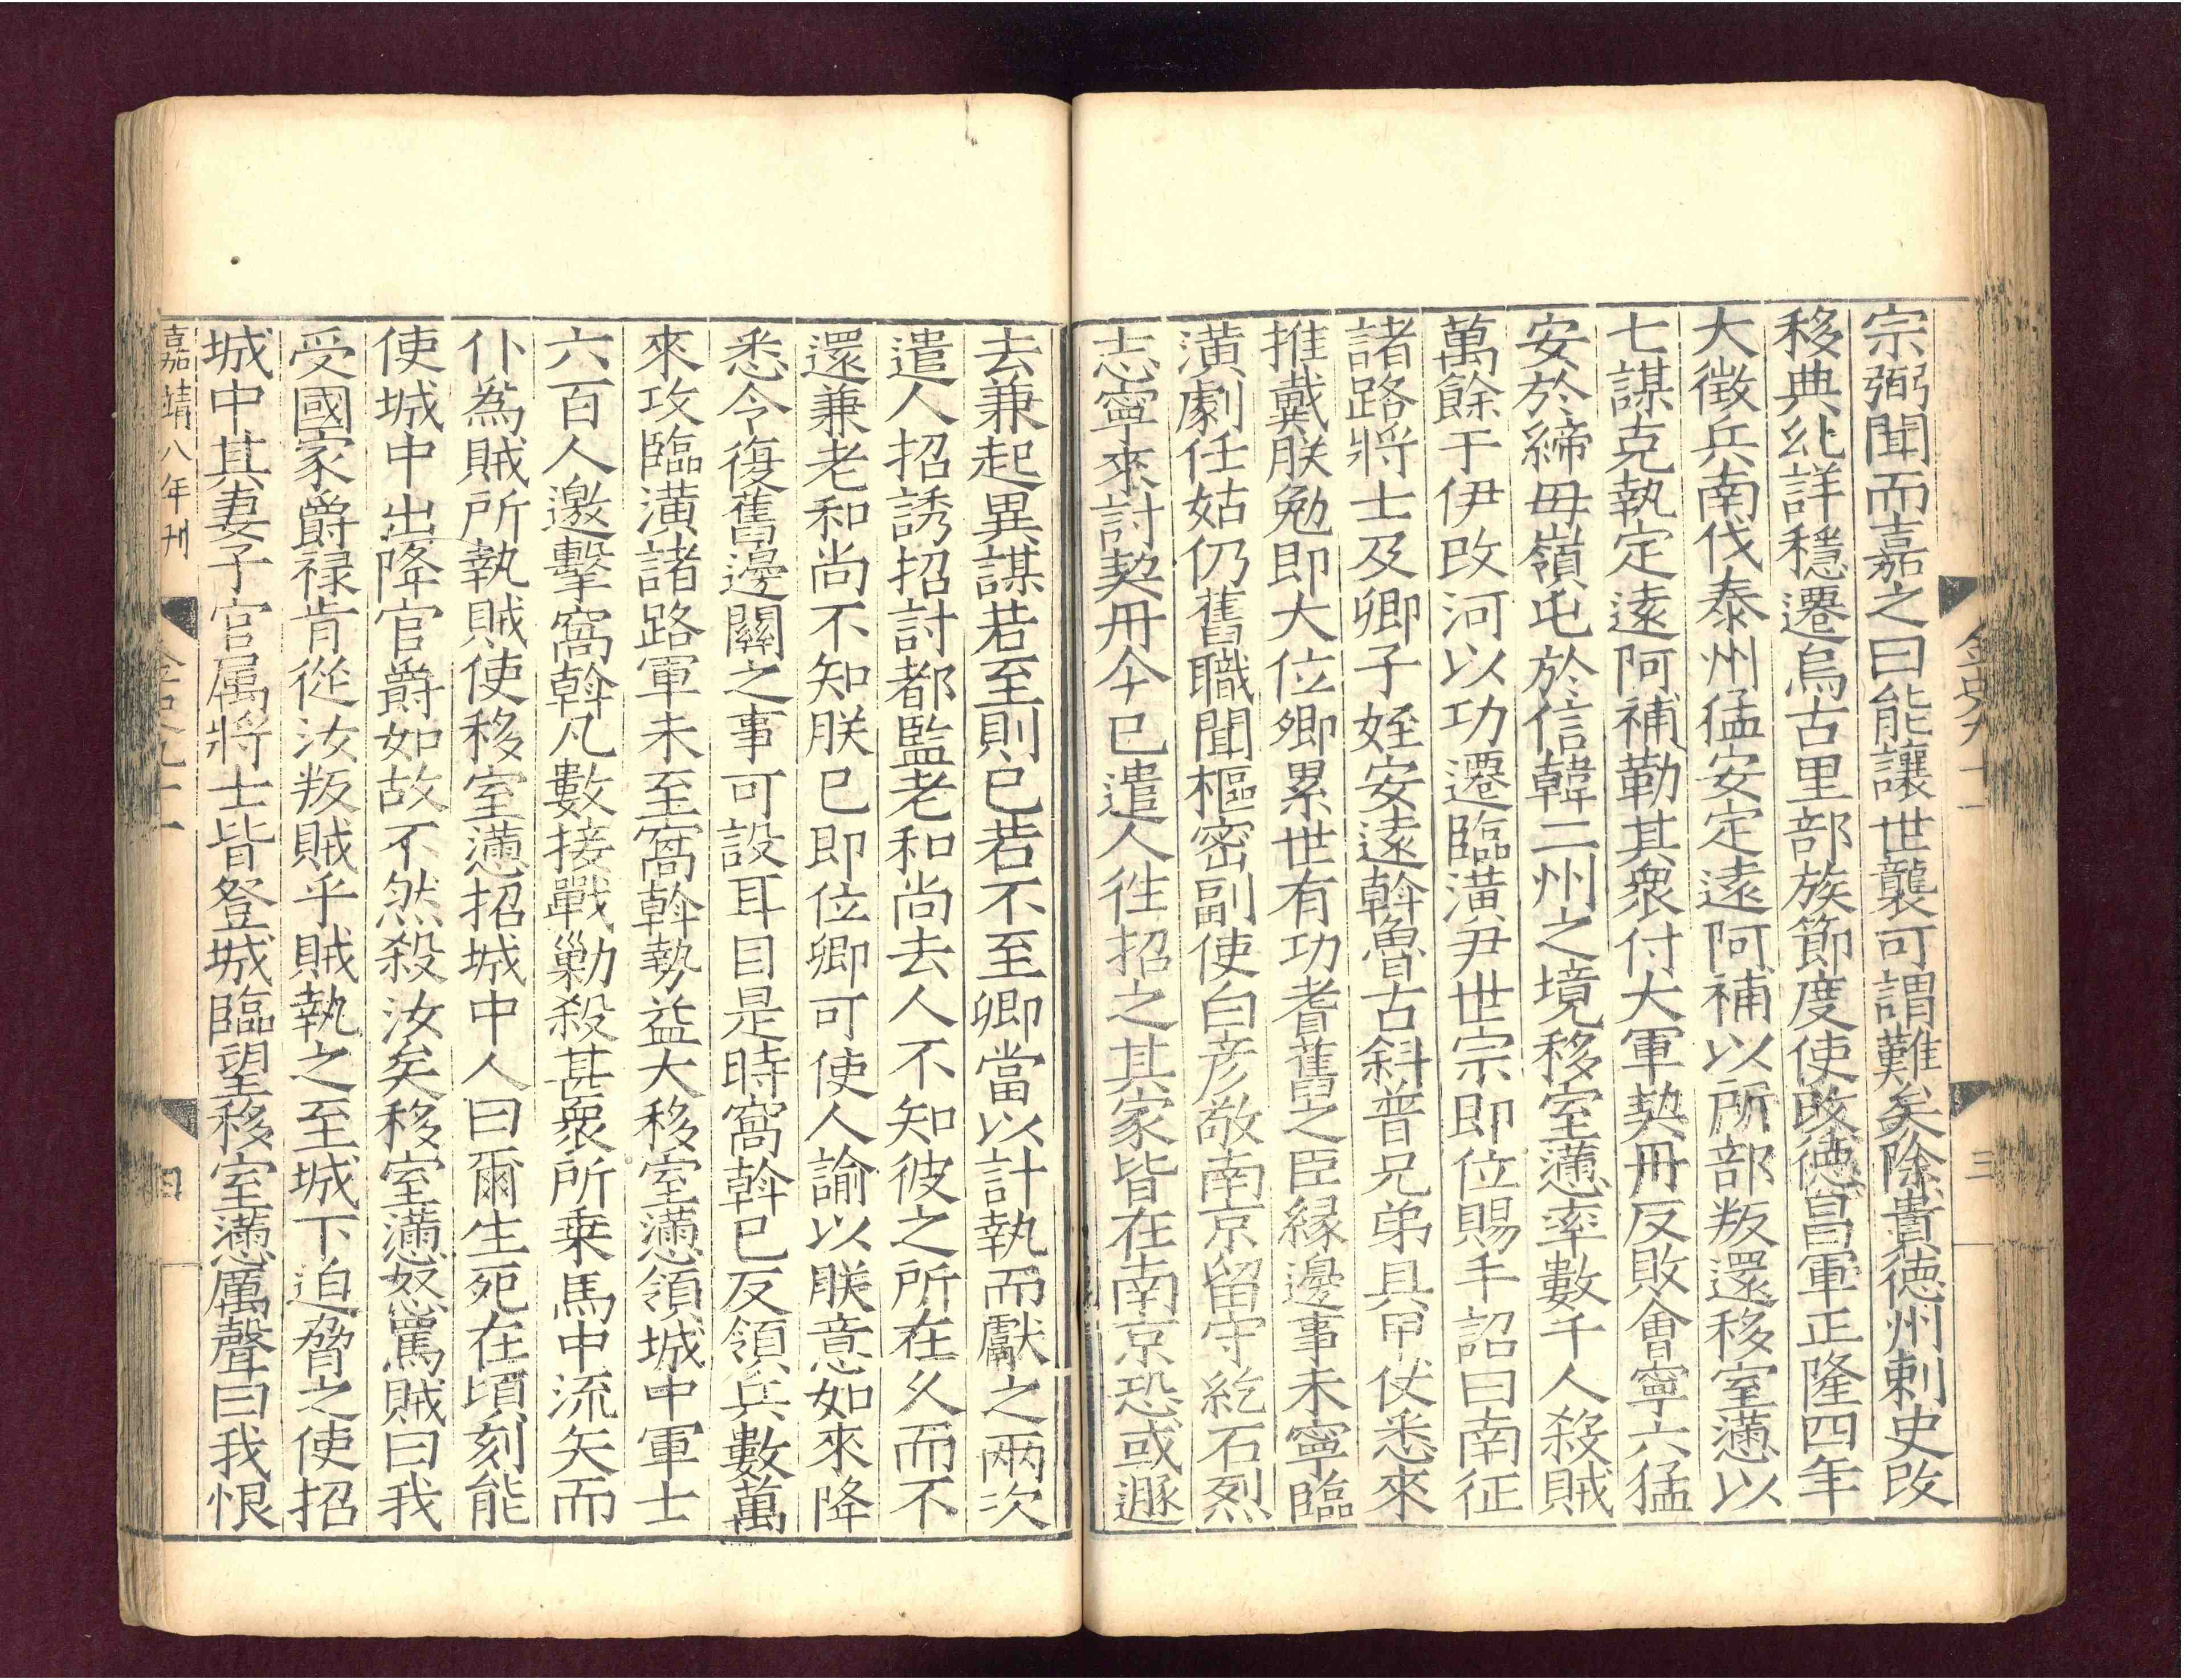 宗弼聞而嘉之曰能讓世襲可謂難矣除貴德州刺史改
移典乣詳穩遷烏古里部族節度使改德昌軍正隆四年
大徵兵南伐泰州猛安定遠阿補以所部叛還移室懣以
七謀克執定遠阿補勒其衆付大軍契丹反敗會寧六猛
安於締毋嶺屯於信韓二州之境移室懣率數千人殺賊
萬餘于伊改河以功遷臨潢尹世宗即位賜手詔曰南征
諸路將士及卿子姪安遠斡魯古斜普兄弟具甲仗悉來
推戴朕勉即大位卿累世有功耆舊之臣緣邊事未寧臨
潢劇任姑仍舊職聞樞密副使白彦敬南京留守紇石烈
志寧來討契丹今已遣人徃招之其家皆在南京恐或遯
去兼起異謀若至則已若不至卿當以計執而獻之兩次
遣人招誘招討都監老和尚去人不知彼之所在久而不
還兼老和尚不知朕已即位卿可使人諭以朕意如來降
悉令復舊邊關之事可設耳目是時窩斡已反領兵數萬
來攻臨潢諸路軍未至窩斡勢益大移室懣領城中軍士
六百人邀擊窩斡凡數接戰勦殺甚衆所乗馬中流矢而
仆爲賊所執賊使移室懣招城中人曰爾生死在頃刻能
使城中出降官爵如故不然殺汝矣移室懣怒罵賊曰我
受國家爵禄肯從汝叛賊乎賊執之至城下迫脅之使招
城中其妻子官属將士皆登城臨望移室懣厲聲曰我恨
嘉靖八年刊
金史九十一
三
金史九十一
四